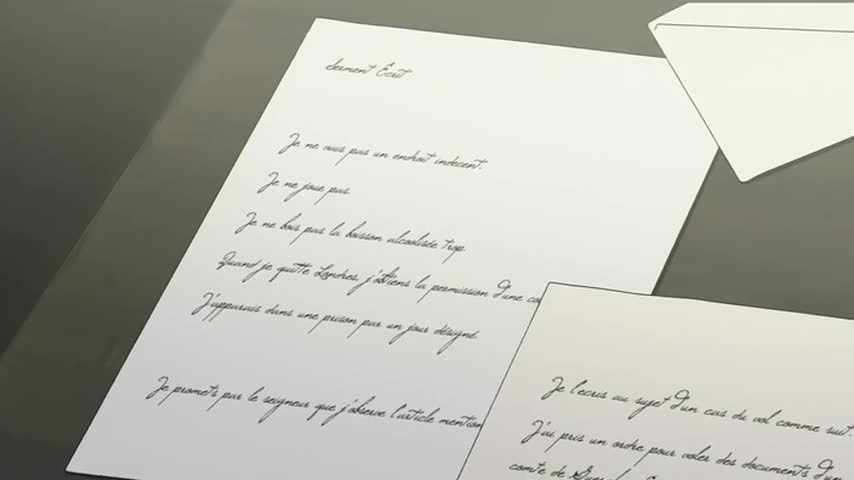 Serment Écrit
Je ne vais pas un endroit indécent.
Je ne joue pas.
Je ne bois pas la boisson alcoolisée trop
Quand je quitte Londres, j'obtiens la permission d'une
J'apparais dans une prison par un jour désigné.
Je promets par le seigneur que j'observe l'article mention
Je l'écris au sujet d'un cas du vol comme suit.
J'ai pris un ordre pour voler des documents d'un
comte de